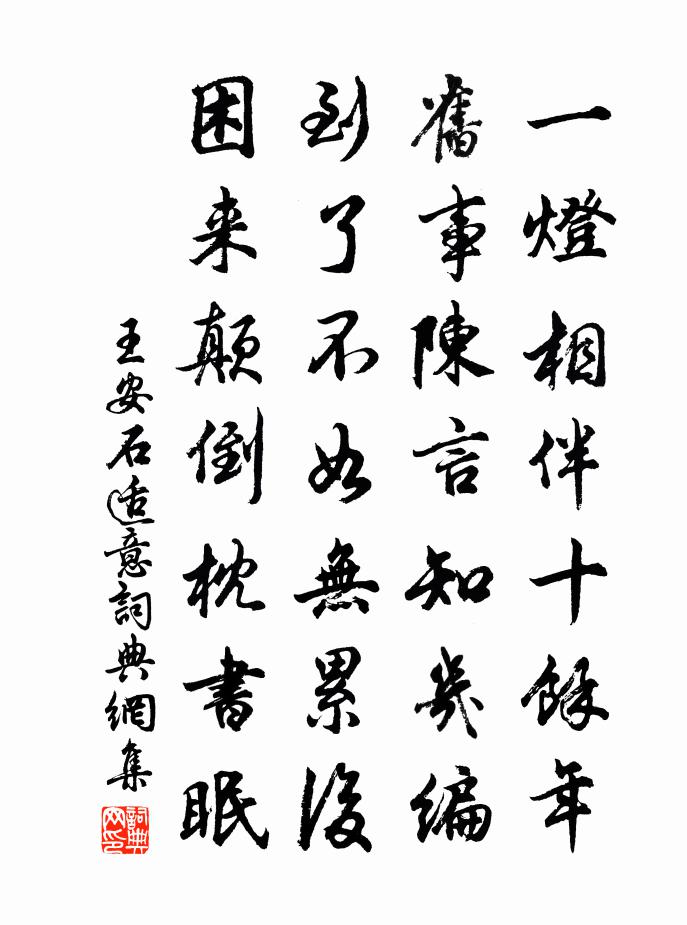 一燈相伴十餘年
舊事陳言知幾編
到了不如無累後
困来顛倒枕書眠
王安石适意詞典網集
詞典网印